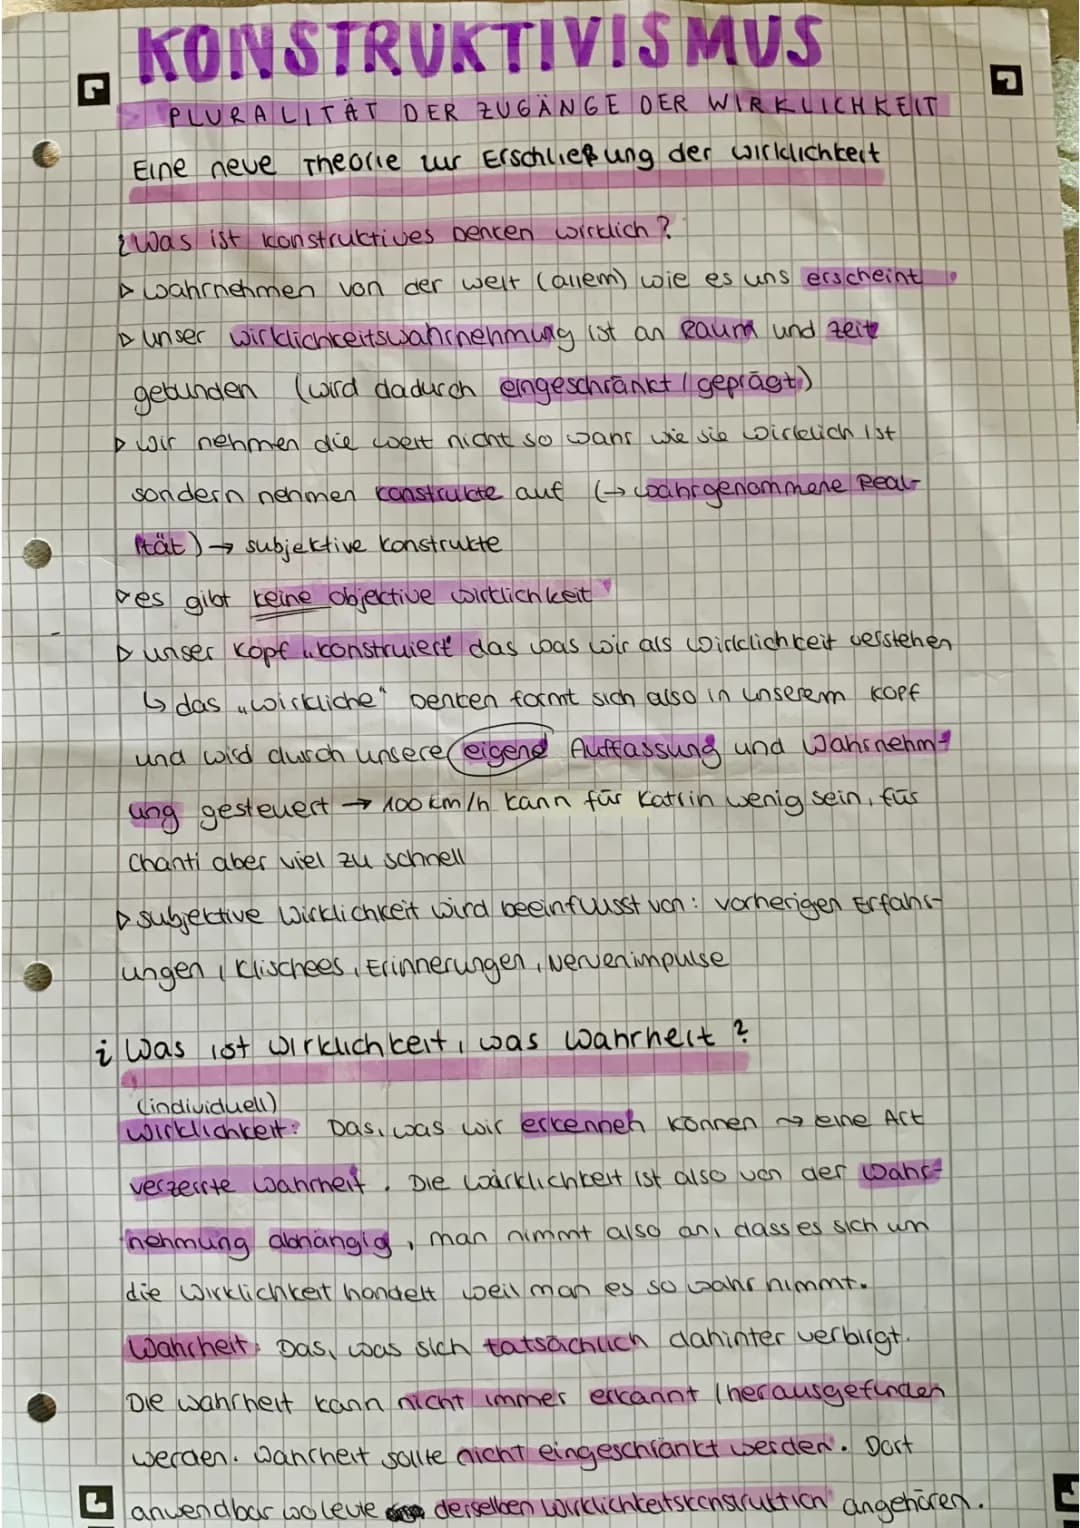 KONSTRUKTIVISMUS
PLURALITÄT DER ZUGÄNGE DER WIRKLICHKEIT
Eine neue Theorie zur Erschließung der Wirklichkeit
¿ Was ist konstruktives Denken wirklich?
▷ wahrnehmen von der Welt (allem) wie es uns erscheint
▷ unser Wirklichkeitswahrnehmung ist an Raum und Zeit
gebunden (wird dadurch eingeschränkt / geprägt)
▷ wir nehmen die Welt nicht so wahr wie sie wirklich ist
sondern nehmen Konstrukte auf (→ wahrgenommene Real-
ität) → subjektive Konstrukte
▷ es gibt keine objektive Wirklichkeit
▷ unser Kopf „konstruiert" das was wir als Wirklichkeit verstehen
↳ das „wirkliche" Denken formt sich also in unserem Kopf
und wird durch unsere eigene Auffassung und Wahrnehm-
ung gesteuert → 100 km/h kann für Katrin wenig sein, für
Chanti aber viel zu schnell
▷ subjektive Wirklichkeit wird beeinflusst von: vorherigen Erfahr-
ungen, Klischees, Erinnerungen, Nervenimpulse
¿ Was ist Wirklichkeit, was Wahrheit?
(individuell)
Wirklichkeit: Das, was wir erkennen können ⤳ eine Art
verzerrte Wahrheit. Die Wirklichkeit ist also von der Wahr-
nehmung abhängig, man nimmt also an, dass es sich um
die Wirklichkeit handelt weil man es so wahrnimmt.
Wahrheit: Das, was sich tatsächlich dahinter verbirgt.
Die Wahrheit kann nicht immer erkannt / herausgefunden
werden. Wahrheit sollte nicht eingeschränkt werden. Dort
anwendbar wo Leute derselben Wirklichkeitskonstruktion angehören.